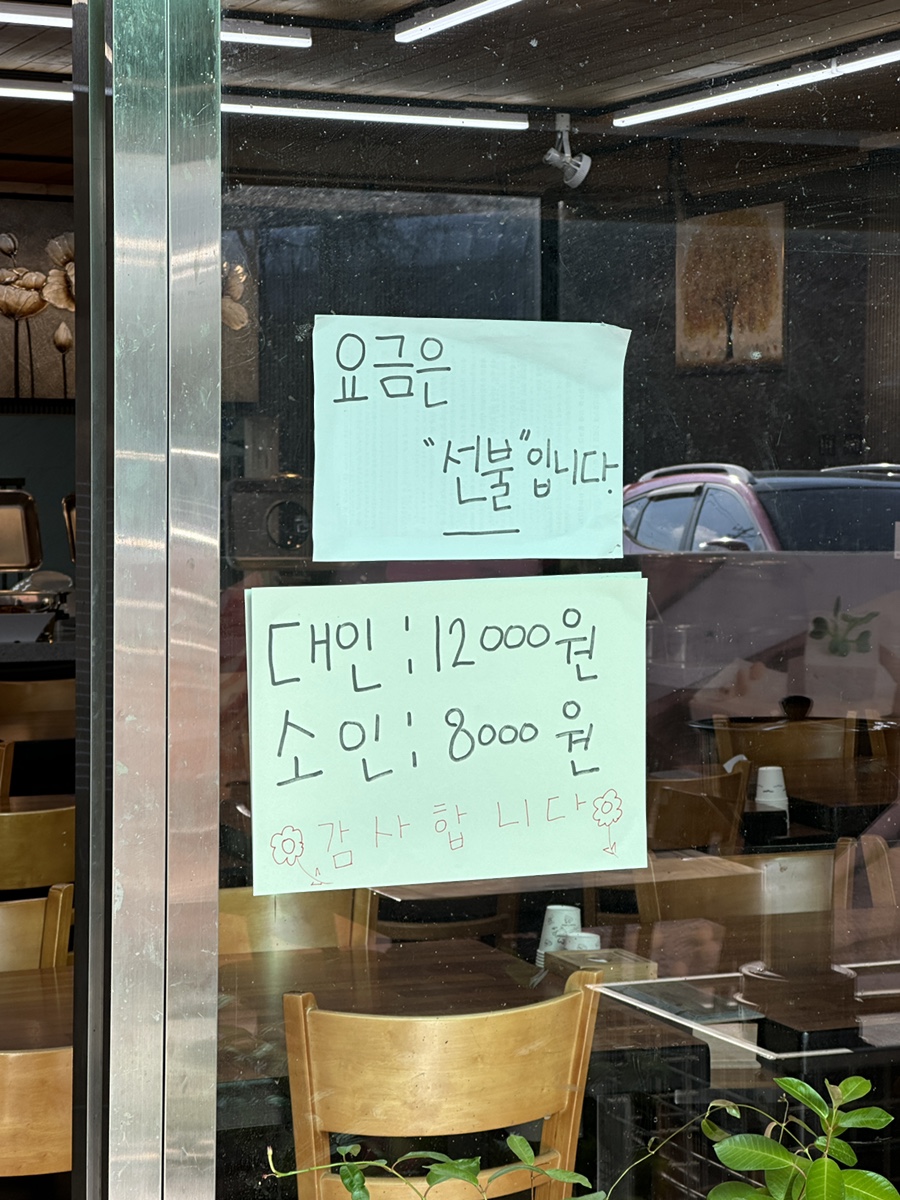 요금은
"선불"입니다.
대인 : 12000원
소인 : 8000원
감사합니다